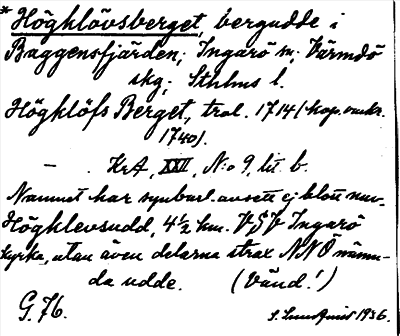 * Högklövsberget, bergudde i
Baggensfjärden; Ingarö sn; Värmdö
skg; Sthlms l.
Högklöfs Berget, trol. 1714 (kop. omkr.
1740).
— . KrA, XXII, N:o 9, lit. b.
Namnet har synbarl. avsett ej blott nuv.
Högklevsudd, 4½ km. VSV Ingarö
kyrka, utan även delarna strax NNO nämn-
da udde. (Vänd!)
G. 76. 1936.